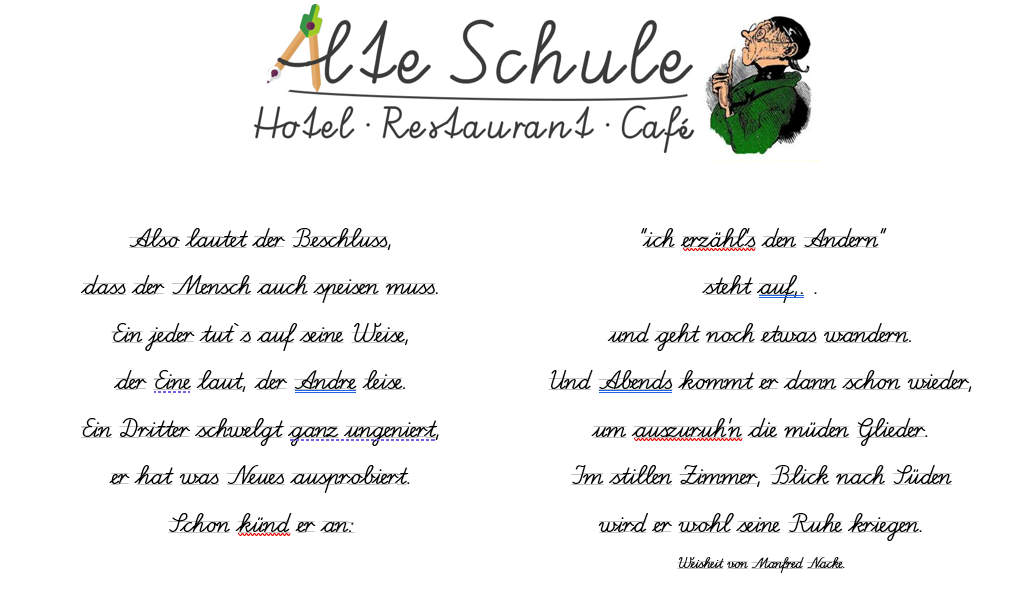 Alte Schule
Hotel · Restaurant · Café
Also lautet der Beschluss,
dass der Mensch auch speisen muss.
Ein jeder tut`s auf seine Weise,
der Eine laut, der Andre leise.
Ein Dritter schwelgt ganz ungeniert,
er hat was Neues ausprobiert.
Schon künd er an:
"ich erzähl's den Andern"
steht auf,. .
und geht noch etwas wandern.
Und Abends kommt er dann schon wieder,
um auszuruh'n die müden Glieder.
Im stillen Zimmer, Blick nach Süden
wird er wohl seine Ruhe kriegen.
Weisheit von Manfred Nacke.